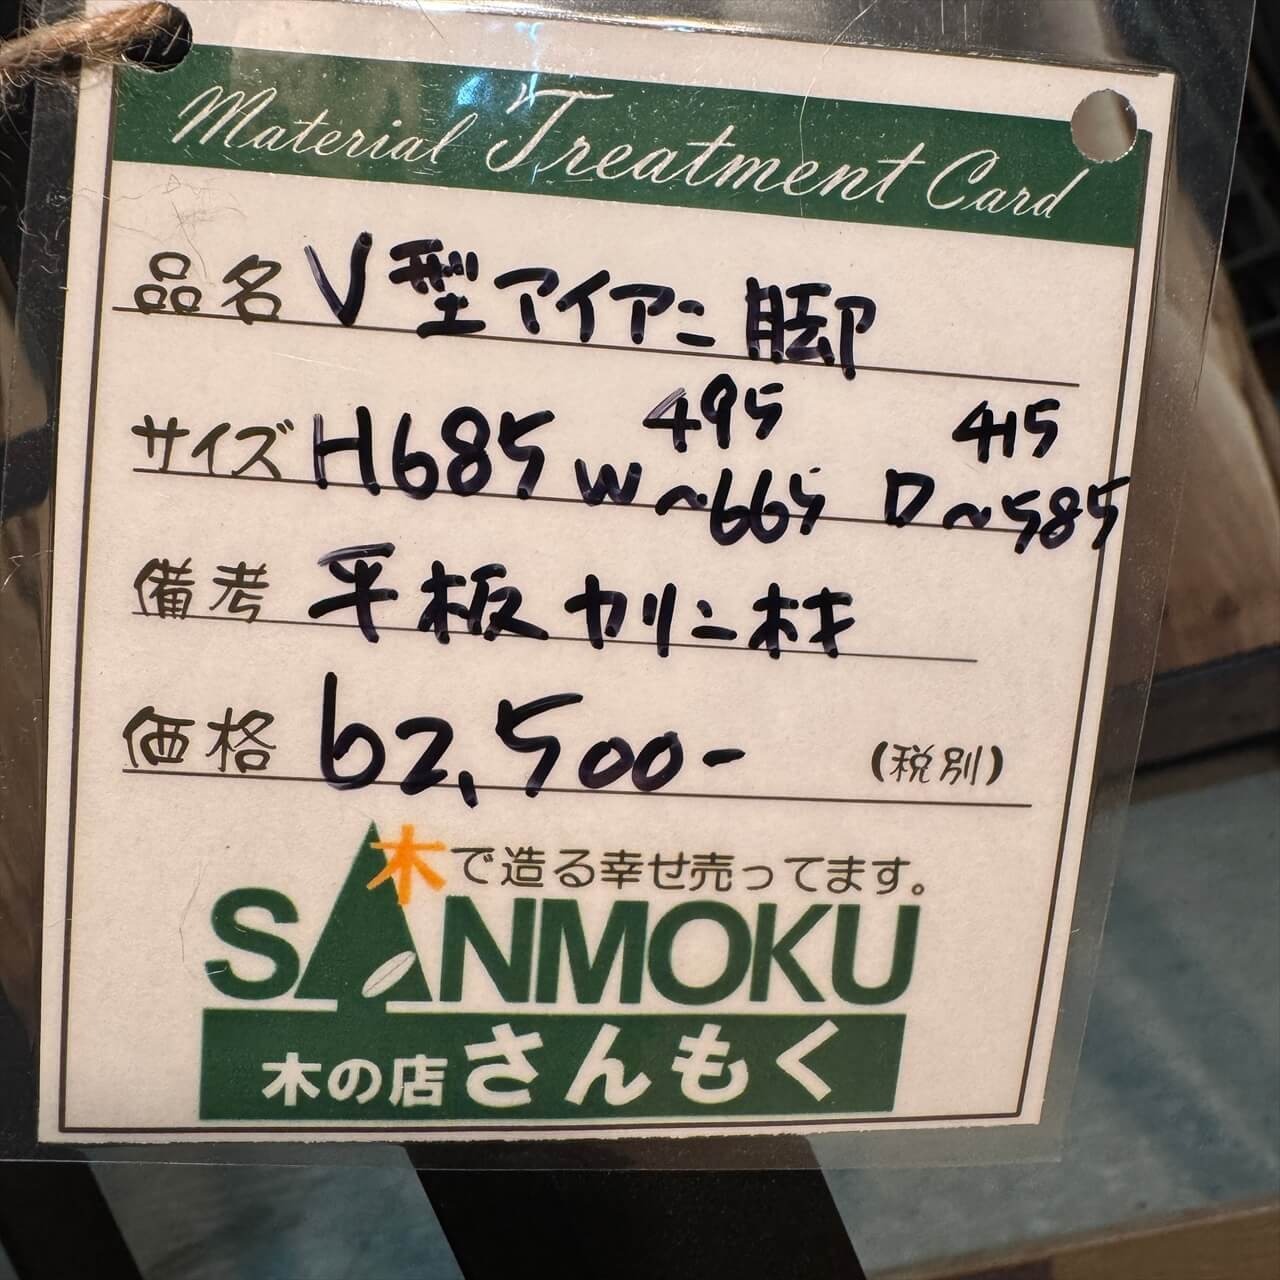 Material Treatment Card
品名 V型アイアン脚
サイズ H685 W 495~665 D 415~585
備考 平板カリン材
価格 62,500- (税別)
木で造る幸せ売ってます。
SANMOKU
木の店さんもく